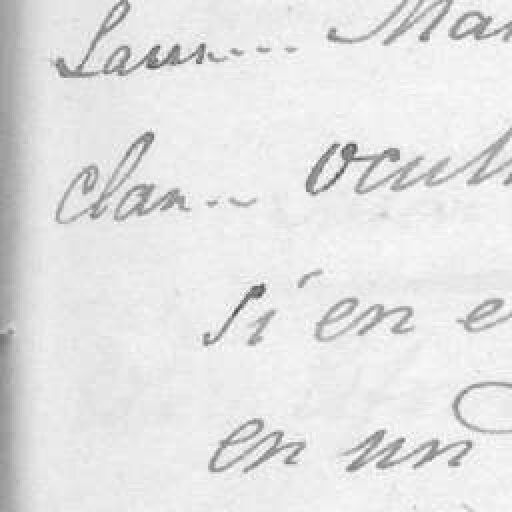 Laur... Mar
clan... ocult
Si en e
en un